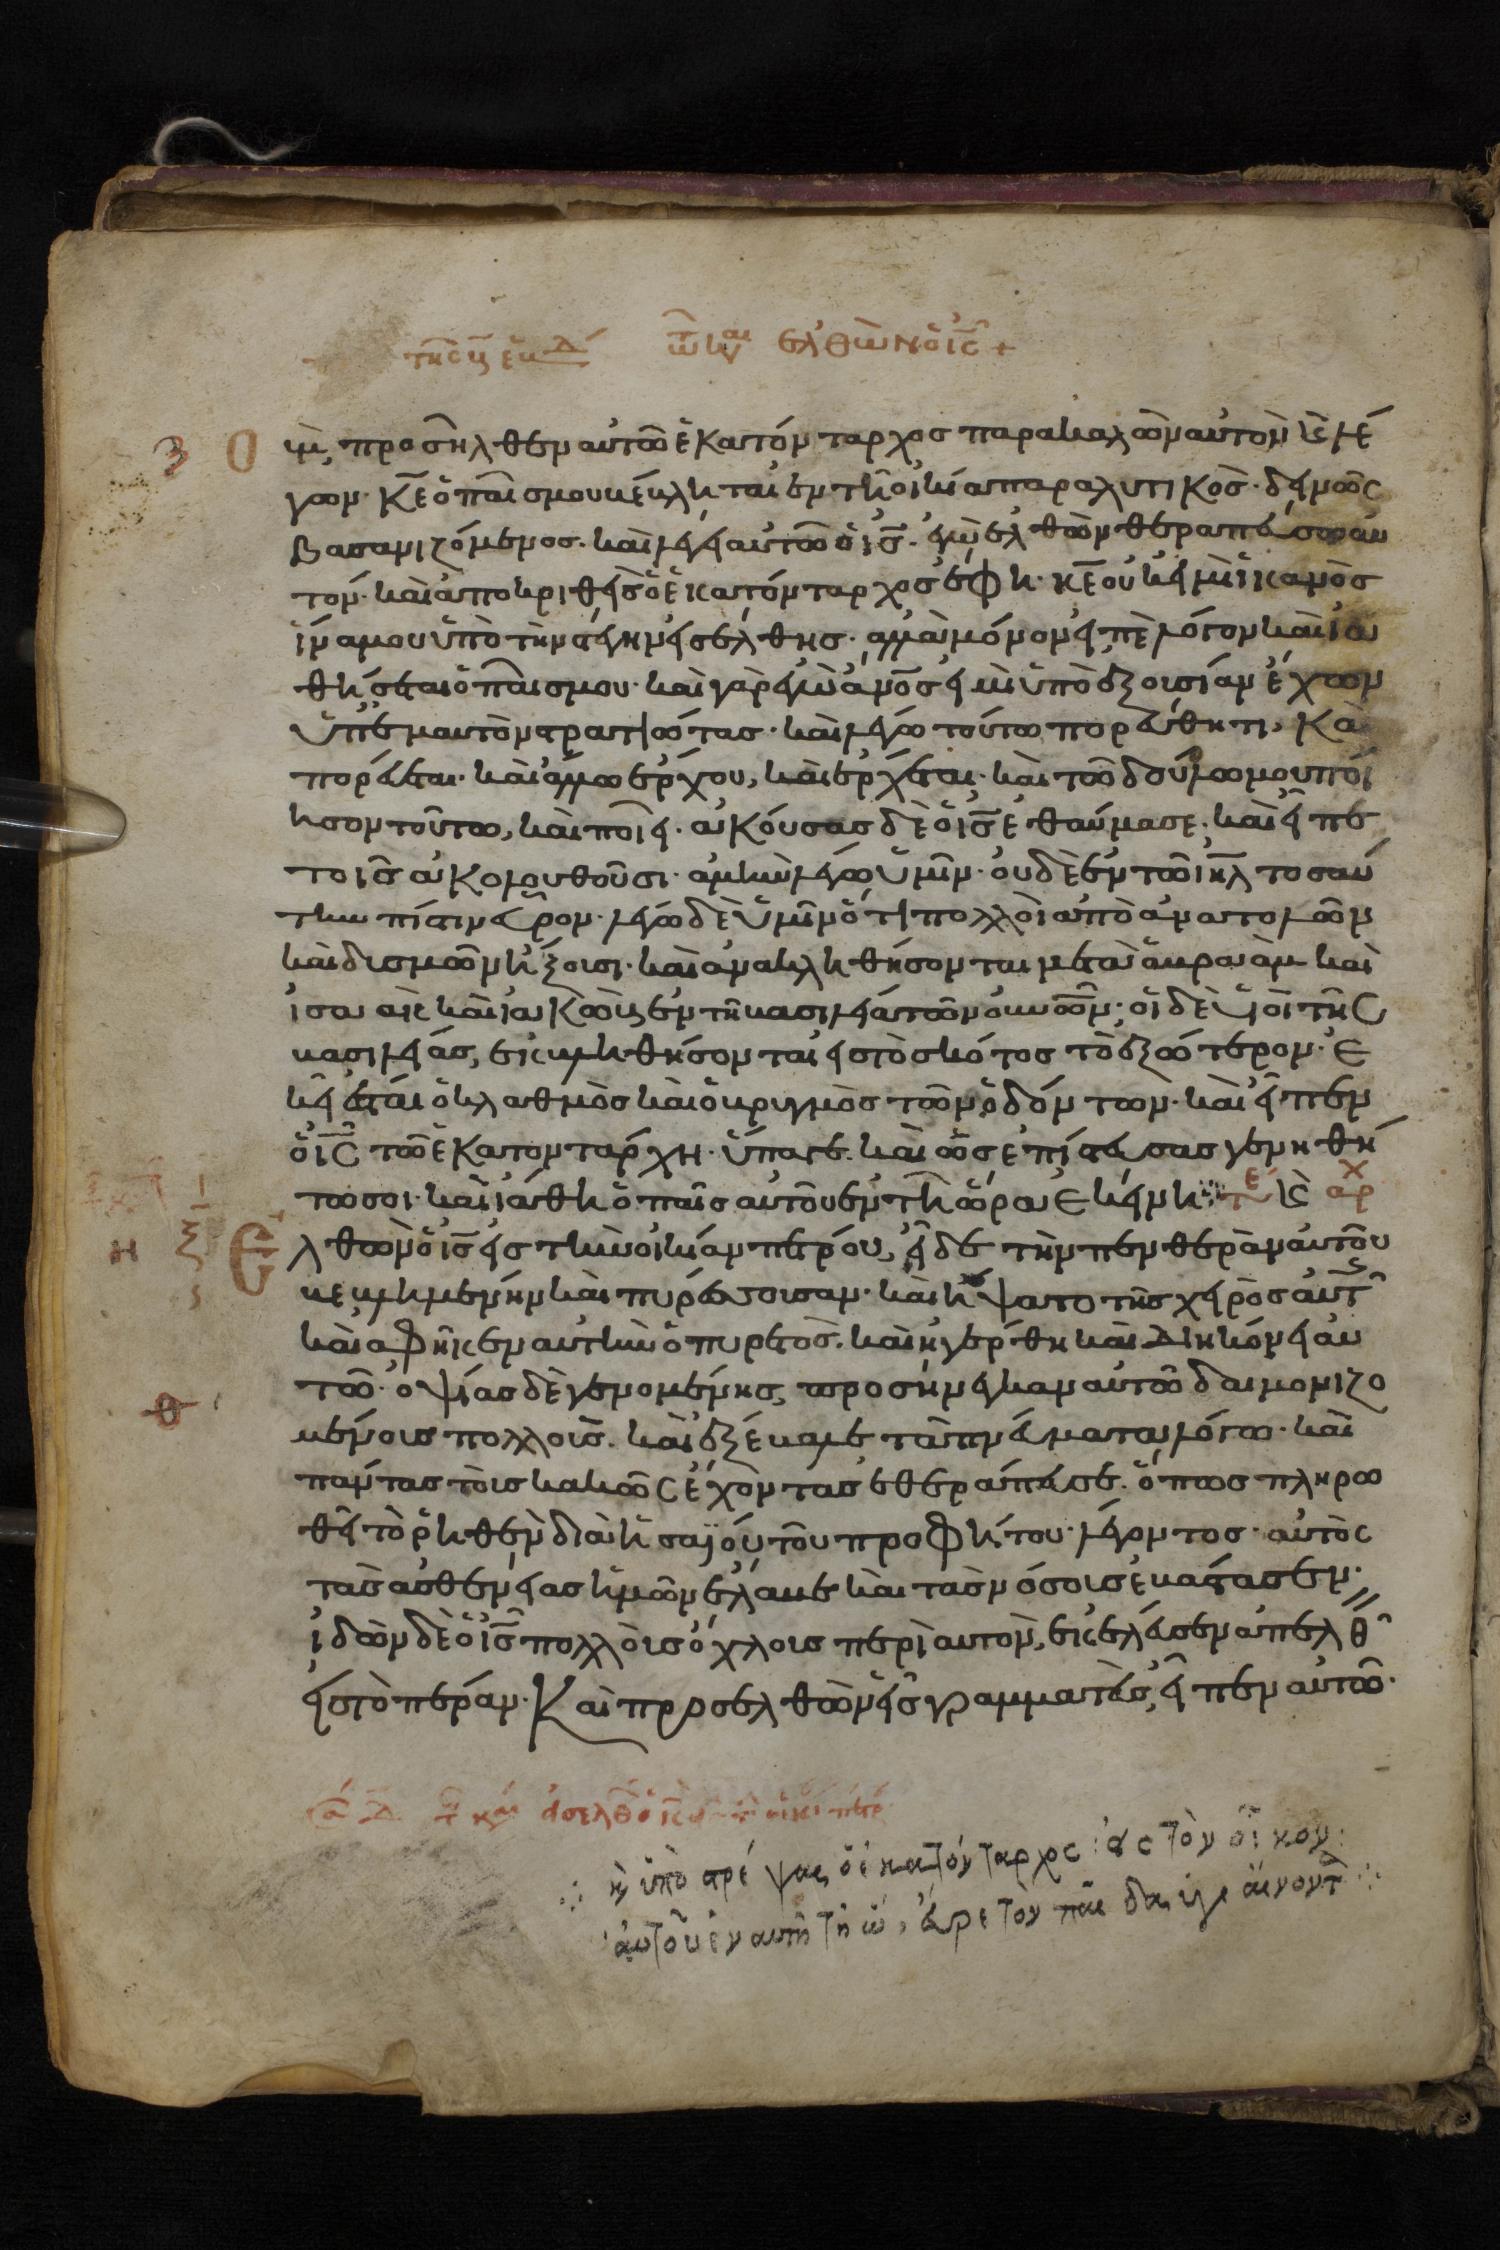 ἐλθὼν ὁ ις +
ζ
ουμ, προσῆλθεν αὐτῶ ἑκατόνταρχος παρακαλῶν αὐτὸν καὶ λέ
γων· κε ὁ παῖς μου βέβληται ἐν τῆ οἰκία παραλυτικὸς· δεινῶς
βασανιζόμενος· καὶ λέγει αὐτῶ ὁ ις· ἐγὼ ἐλθὼν θεραπεύσω αὐ
τόν· καὶ ἀποκριθεὶς ὁ ἑκατόνταρχος ἔφη· κε οὐκ εἰμὶ ἱκανὸς
ἵνα μου ὑπὸ τὴν στέγην εἰσέλθης· ἀλλὰ μόνον εἰπὲ λόγον καὶ ἰα
θήσεται ὁ παῖς μου· καὶ γὰρ ἐγὼ ανος εἰμὶ ὑπὸ ἐξουσίαν ἔχων
ὑπ' ἐμαυτὸν στρατιώτας· καὶ λέγω τούτω πορεύθητι, καὶ
πορεύεται· καὶ ἄλλω ἔρχου, καὶ ἔρχεται· καὶ τῶ δούλω μου ποί
ησον τοῦτο, καὶ ποιεῖ· ἀκούσας δὲ ὁ ις ἐθαύμασε· καὶ εἶπε
τοῖς ἀκολουθοῦσι· ἀμὴν λέγω ὑμῖν· οὐδὲ ἐν τῶ ιηλ τοσαύ
την πίστιν εὗρον· λέγω δὲ ὑμῖν ὅτι πολλοὶ ἀπὸ ἀνατολῶν
καὶ δυσμῶν ἥξουσι· καὶ ἀνακληθήσονται μετὰ ἀβραὰμ καὶ
ἰσαὰκ καὶ ἰακὼβ ἐν τῆ βασιλεία τῶν ουνων· οἱ δὲ υἱοὶ τῆς
βασιλείας, ἐκβληθήσονται εἰς τὸ σκότος τὸ ἐξώτερον· ἐ
κεῖ ἔσται ὁ κλαθμὸς καὶ ὁ βρυγμὸς τῶν ὀδόντων· καὶ εἶπεν
ὁ ις τῶ ἑκατοντάρχη· ὕπαγε· καὶ ὡς ἐπίστευσας γενηθή
τω σοι· καὶ ἰάθη ὁ παῖς αὐτοῦ ἐν τῆ ὥρα ἐκείνη
η Ελθὼν ὁ ις εἰς τὴν οἰκίαν πέτρου, εἶδε τὴν πενθερὰν αὐτοῦ
βεβλημένην καὶ πυρέσσουσαν· καὶ ἥψατο τῆς χειρὸς αὐτῆς
καὶ ἀφῆκεν αὐτὴν ὁ πυρετὸς· καὶ ἠγέρθη καὶ διηκόνει αὐ
τῶ· ὀψίας δὲ γενομένης, προσήνεγκαν αὐτῶ δαιμονιζο
θ
μένους πολλοὺς· καὶ ἐξέβαλε τὰ πνεύματα λόγω· καὶ
πάντας τοὺς κακῶς ἔχοντας ἐθεράπευσε· ὅπως πληρω
θῆ τὸ ῥηθὲν διὰ ἡσαΐου τοῦ προφήτου· λέγοντος· αὐτὸς
τὰς ἀσθενείας ἡμῶν ἔλαβε καὶ τὰς νόσους ἐβάστασεν·
ἰδὼν δὲ ὁ ις πολλοὺς ὄχλους περὶ αὐτὸν, ἐκέλευσεν ἀπελθεῖν
εἰς τὸ πέραν· Καὶ προσελθὼν εἷς γραμματεὺς, εἶπεν αὐτῶ·
καὶ ὑποστρέψας ὁ ἑκατόνταρχος εἰς τὸν οἶκον
αὐτοῦ ἐν αὐτῆ τῆ ὥ, εὗρε τὸν παῖδα ὑγιαίνοντα